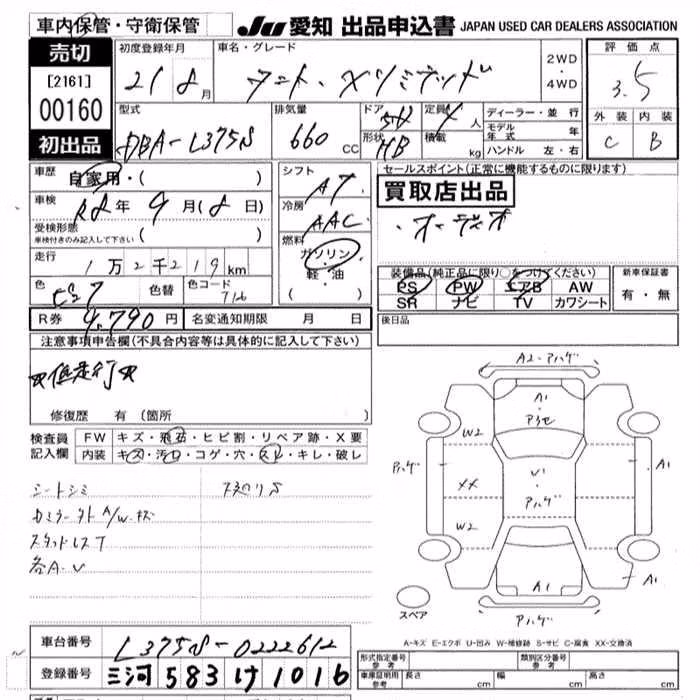 車内保管・守衛保管
JU 愛知 出品申込書 JAPAN USED CAR DEALERS ASSOCIATION
売切
[2161]
00160
初出品
初度登録年月
21 8月
車名・グレード
タント・Xリミテッド
2WD
・
4WD
評価点
3.5
外装 内装
C B
型式
DBA-L375S
排気量
660 cc
ドア
5
形状
HB
定員
4人
積載
kg
ディーラー・並行
モデル年式 年
ハンドル 左・右
車歴
自家用・( )
車検
R8年9月(8日)
受検形態
車検付きのみ記入して下さい ( )
走行
1万2千219km
色
色替
色コード
R券 9,790円
名変通知期限 月 日
シフト
AT
冷房
AAC
燃料
ガソリン
・
軽・油
( )
セールスポイント(正常に機能するものに限ります)
買取店出品
・オーディオ
装備品(純正品に限り○をつけてください)
PS PW エアB AW
SR ナビ TV カワシート
新車保証書
有・無
後日品
注意事項申告欄(不具合内容等は具体的に記入して下さい)
★低走行★
修復歴 有 (箇所 )
検査員記入欄
FW キズ・飛石・ヒビ割・リペア跡・X要
内装 キズ・汚ロ・コゲ・穴・スレ・キレ・破レ
シートシミ
スタッドレスT
各A・U
A2・アハゲ
A1
W2
アハゲ
アハゲ
A1
XX
W2
A1
A1
スペア
アハゲ
A-キズ E-エクボ U-凹み W-補修跡 S-サビ C-腐食 XX-交換済
車台番号 L375S-0222612
登録番号 三河 583 け 1016
形式指定番号 参考
類別区分番号 参考
車庫証明用 参考 長さ cm 幅 cm 高さ cm